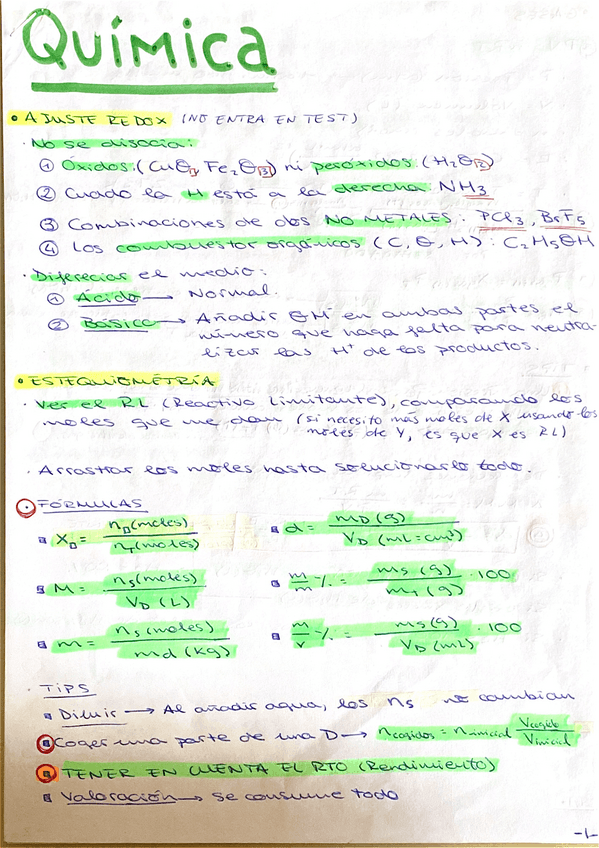 QUÍMICA
• AJUSTE REDOX (NO ENTRA EN TEST)
· No se disocia:
① Óxidos: (CuO, Fe₂O₃) ni peróxidos: (H₂O₂)
② Cuado la H está a la derecha: NH₃
③ Combinaciones de dos NO METALES: PCl₃, BrF₅
④ Los combustor orgánicos (C, O, H): C₂H₅OH
· Difereciar el medio:
① Ácido → Normal.
② Básico → Añadir OH⁻ en ambas partes el
número que haga falta para neutra-
lizar las H⁺ de los productos.
• ESTEQUIOMÉTRÍA
· Ver el RL (Reactivo Limitante), comparando los
moles que me dan (si necesito más moles de X usando los
moles de Y, es que X es RL)
· Arrastrar los moles hasta solucionarlo todo.
· FÓRMULAS
X□ = n□ (moles) / nT (moles)
d = mD (g) / VD (mL = cm³)
M = ns (moles) / VD (L)
m/m % = ms (g) / mT (g) · 100
m = ns (moles) / md (kg)
m/v % = ms (g) / VD (mL) · 100
· TIPS
Diluir → Al añadir agua, los ns no cambian
Coger una parte de una D → ncogidos = ninicial Vcogido / Vinicial
TENER EN CUENTA EL RTO (Rendimiento)
Valoración → se consume todo
-1-